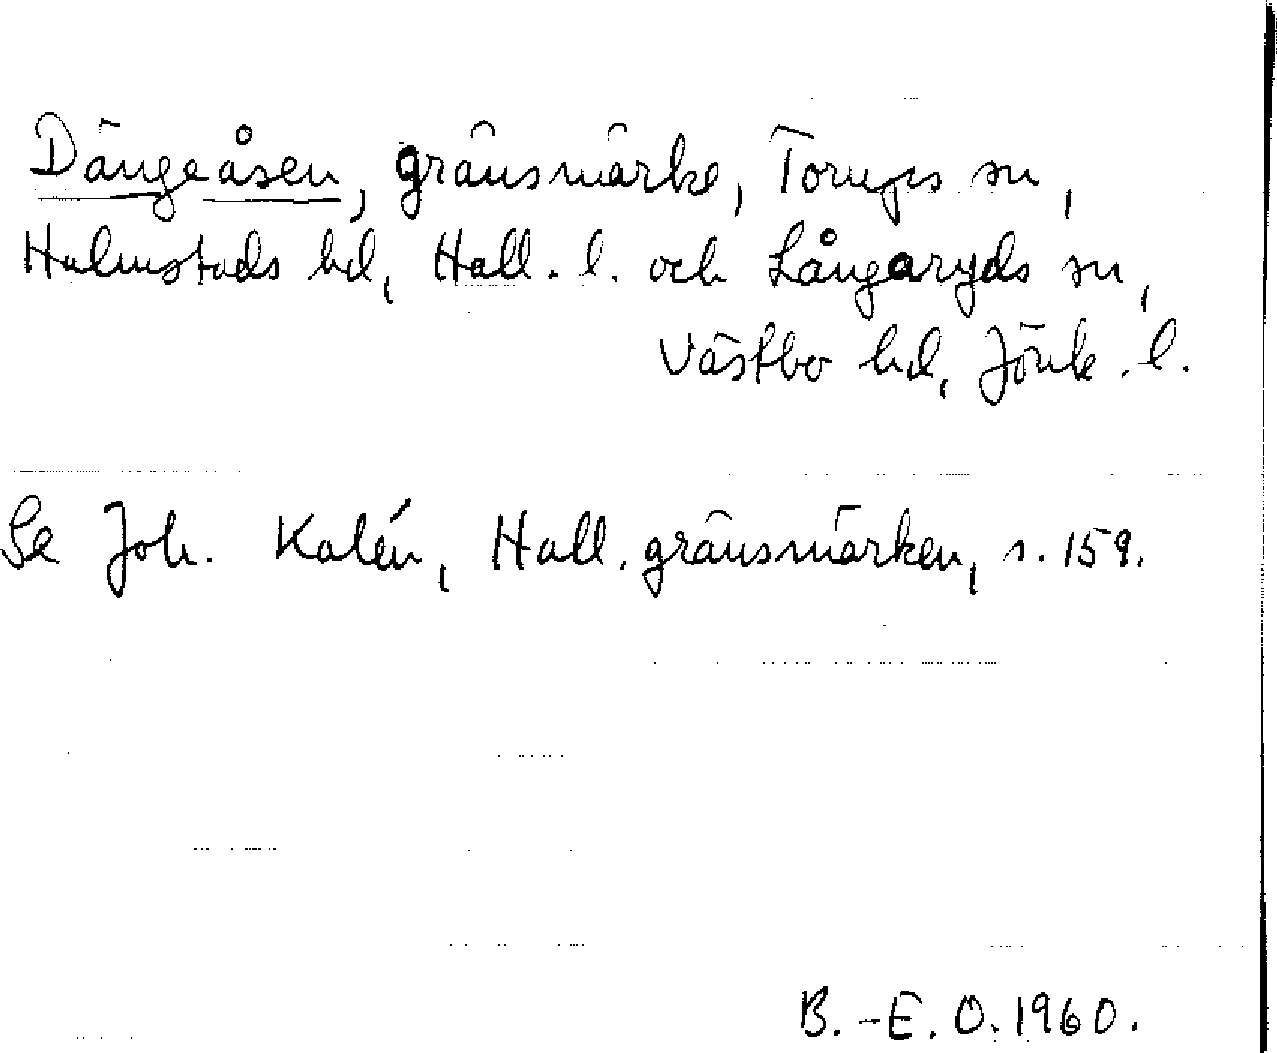 Dängeåsen, gränsmärke, Torups sn,
Halmstads hd, Hall. l. och Långaryds sn,
Västbo hd, Jönk. l.
Se Joh. Kalén, Hall. gränsmärken, s. 159.
B.-E. O. 1960.